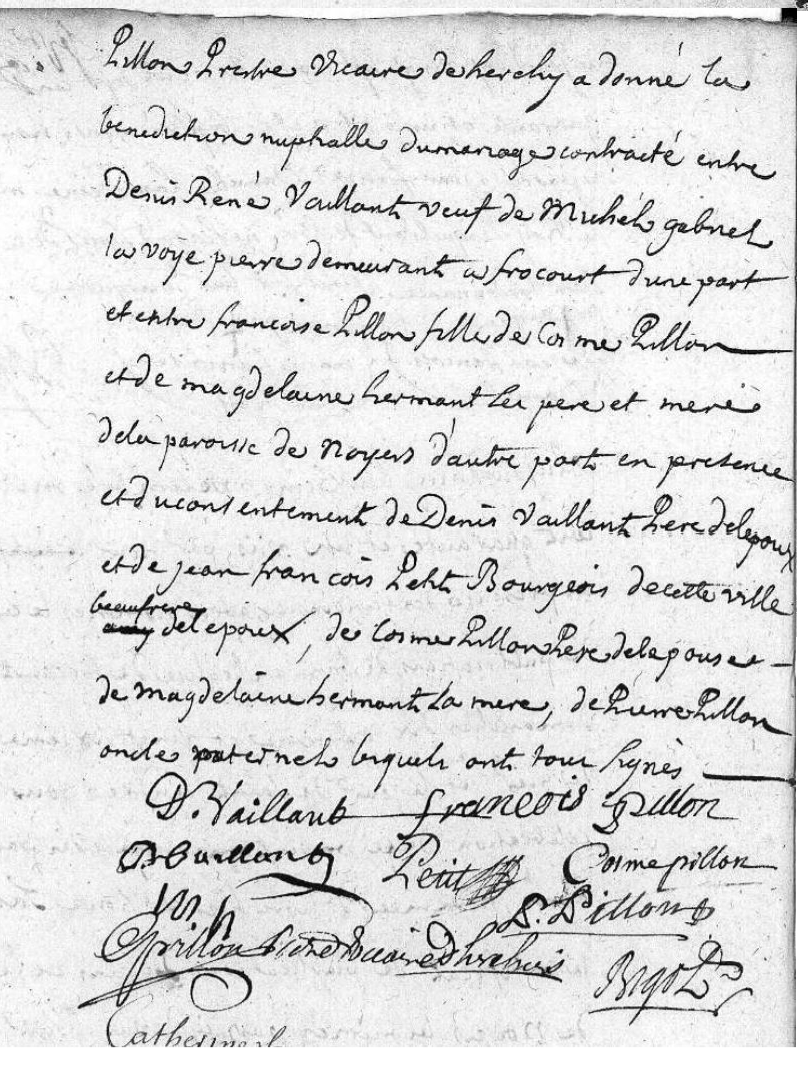 Pillon Prestre Vicaire de herchy a donné la
benediction nuptialle du mariage contracté entre
Denis René Vaillant veuf de Michel gabriel
la voye pierre demeurant a frocourt d'une part
et entre francoise Pillon fille de Cosme Pillon
et de magdelaine hermant ses pere et mere
de la paroisse de Noyers d'autre part en presence
et du consentement de Denis Vaillant Pere de lepoux
et de jean francois Petit Bourgeois de cette ville
beaufrere
de lepoux, de Cosme Pillon Pere de lepouse
de Magdelaine hermant La mere, de Pierre Pillon
oncle paternel lesquels ont tous signés
D. Vaillant francois Pillon
Vaillant Petit Cosme pillon
P. Pillon
Pillon vicaire Bigot
Catherine